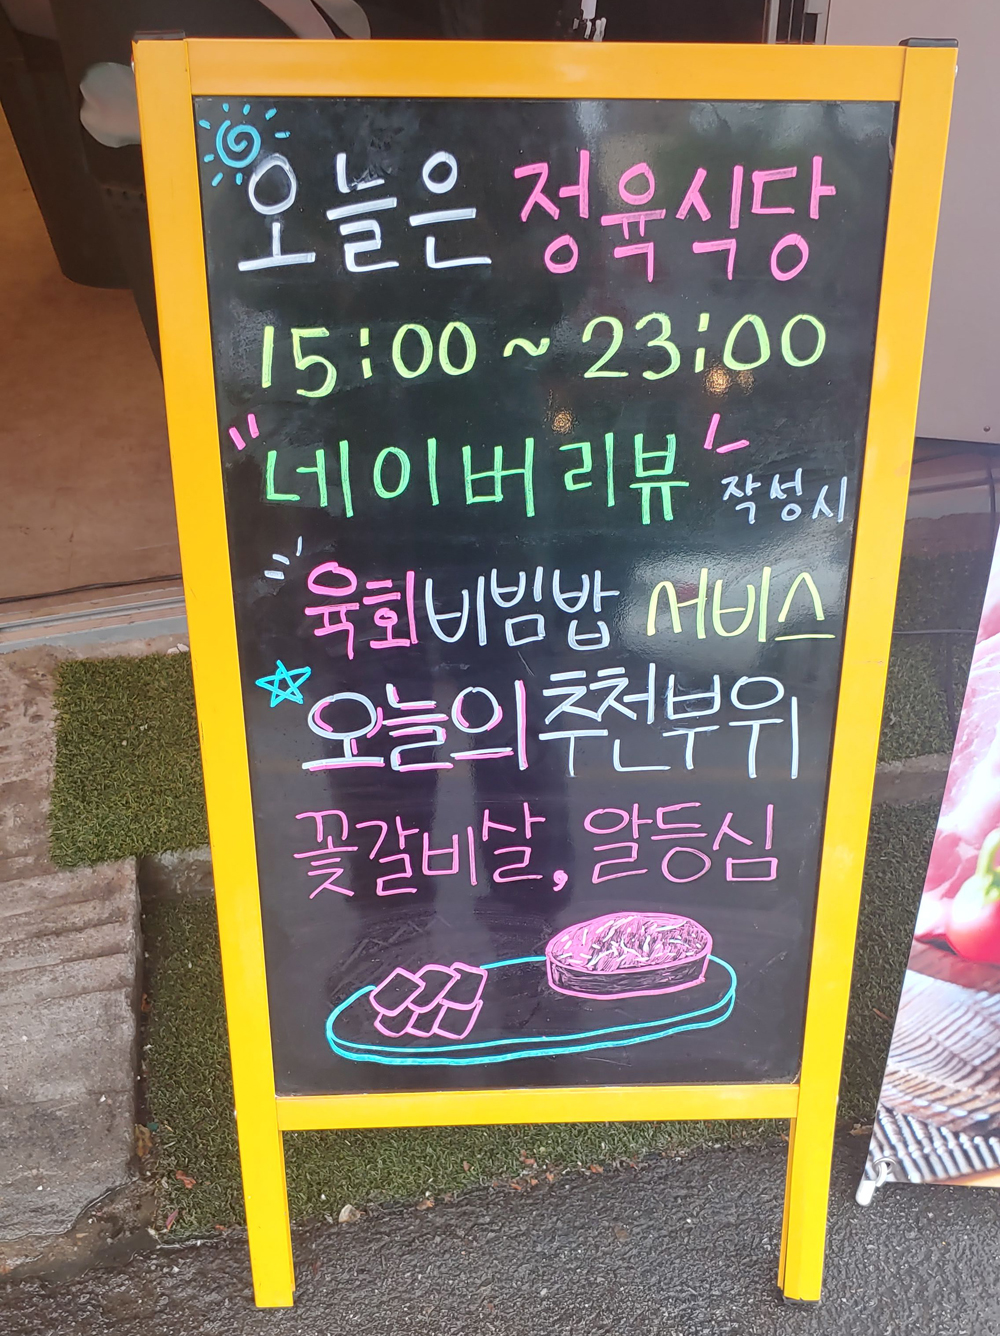 오늘은 정육식당
15:00 ~ 23:00
"네이버리뷰" 작성시
육회비빔밥 서비스
오늘의 추천부위
꽃갈비살, 알등심